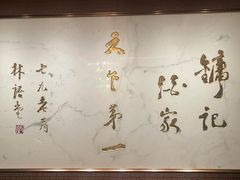 镛记
酒家
天下第一
七九老月
林语堂